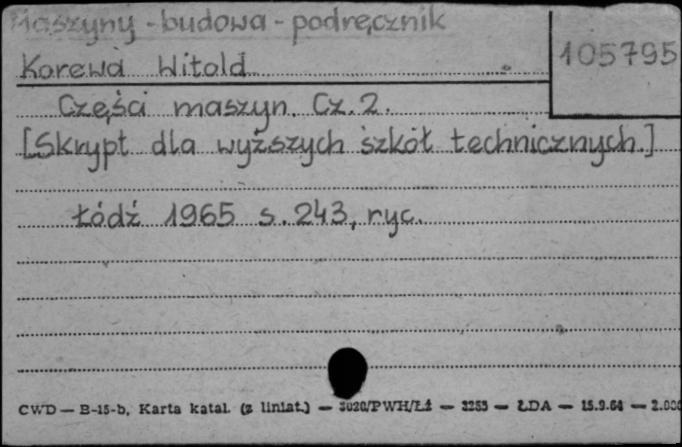 Maszyny - budowa - podręcznik
105795
Korewa Witold
Części maszyn. Cz. 2.
[Skrypt dla wyższych szkół technicznych.]
Łódź 1965 s. 243, ryc.
CWD — B-15-b, Karta katal. (z liniat.) — 3020/PWH/Łź — 3253 — ŁDA — 15.9.64 — 2.000